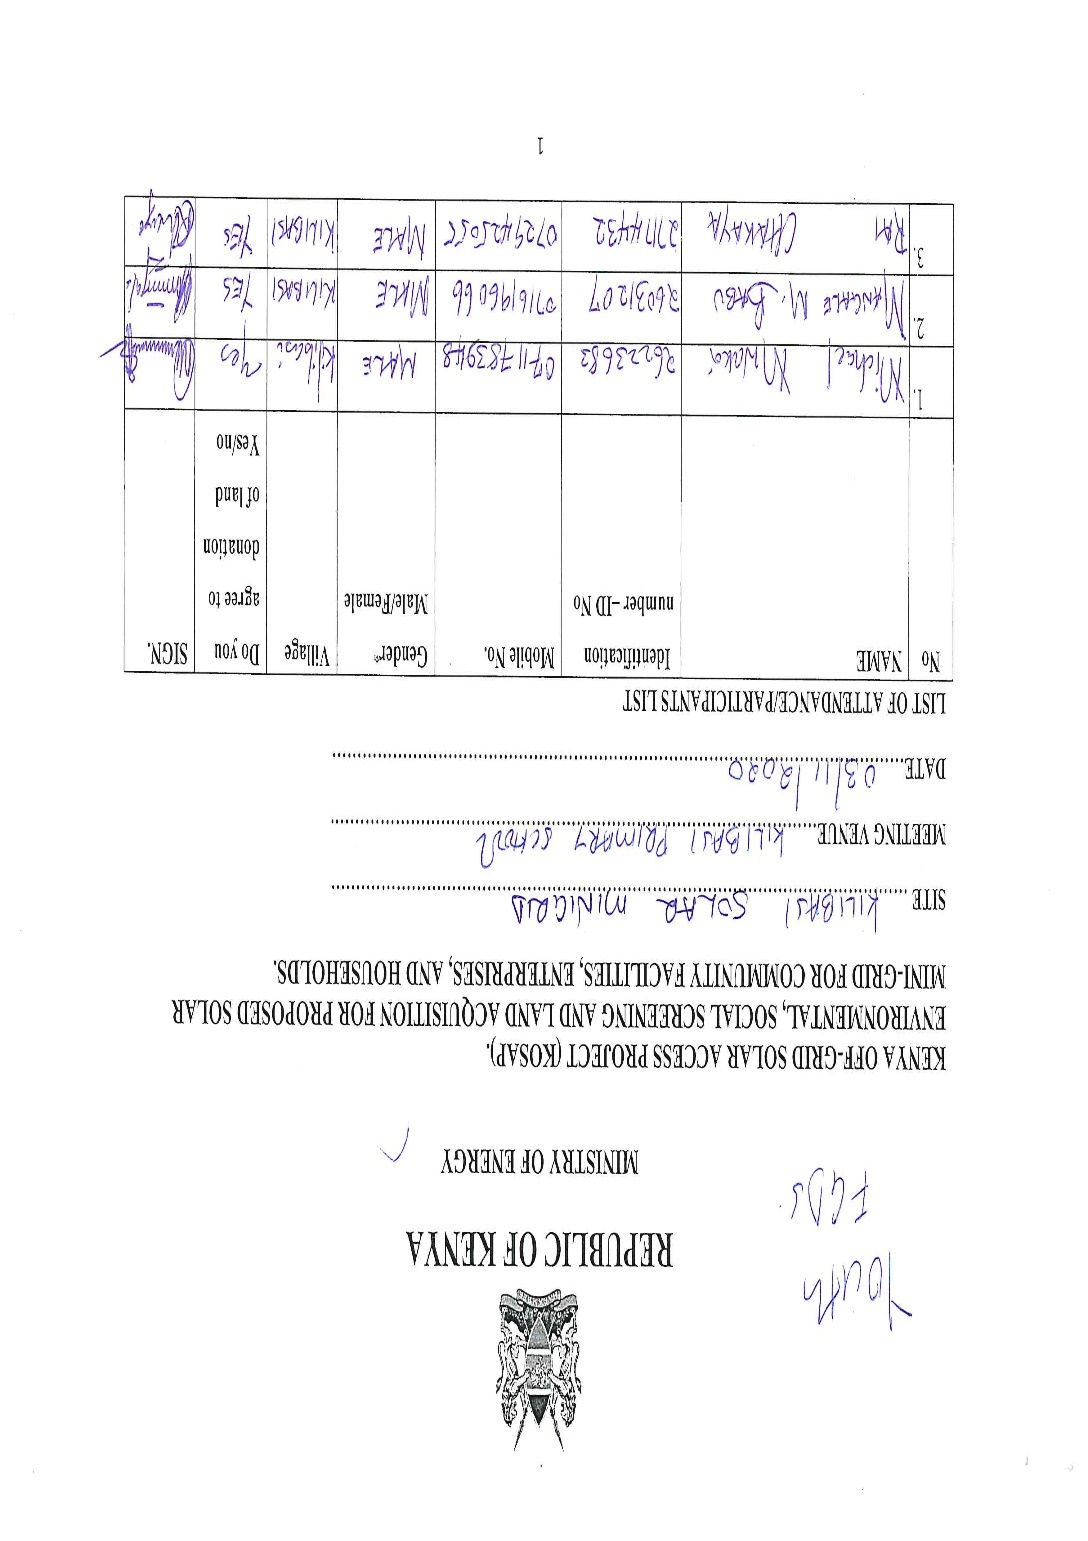 Youth
FGDs
REPUBLIC OF KENYA
MINISTRY OF ENERGY
KENYA OFF-GRID SOLAR ACCESS PROJECT (KOSAP).
ENVIRONMENTAL, SOCIAL SCREENING AND LAND ACQUISITION FOR PROPOSED SOLAR
MINI-GRID FOR COMMUNITY FACILITIES, ENTERPRISES, AND HOUSEHOLDS.
SITE KILIBASI SOLAR MINIGRID
MEETING VENUE KILIBASI PRIMARY SCHOOL
DATE 03/11/2020
LIST OF ATTENDANCE/PARTICIPANTS LIST
No NAME Identification number –ID No Mobile No. Gender Male/Female Village Do you agree to donation of land Yes/no SIGN.
1. Michael 26223683 0711783948 MALE Kilibasi Yes
2. MANGALE M. BABU 26031207 0716196066 MALE KILIBASI YES
3. RAI CHAKAYA 27114432 0729425055 MALE KILIBASI YES
1